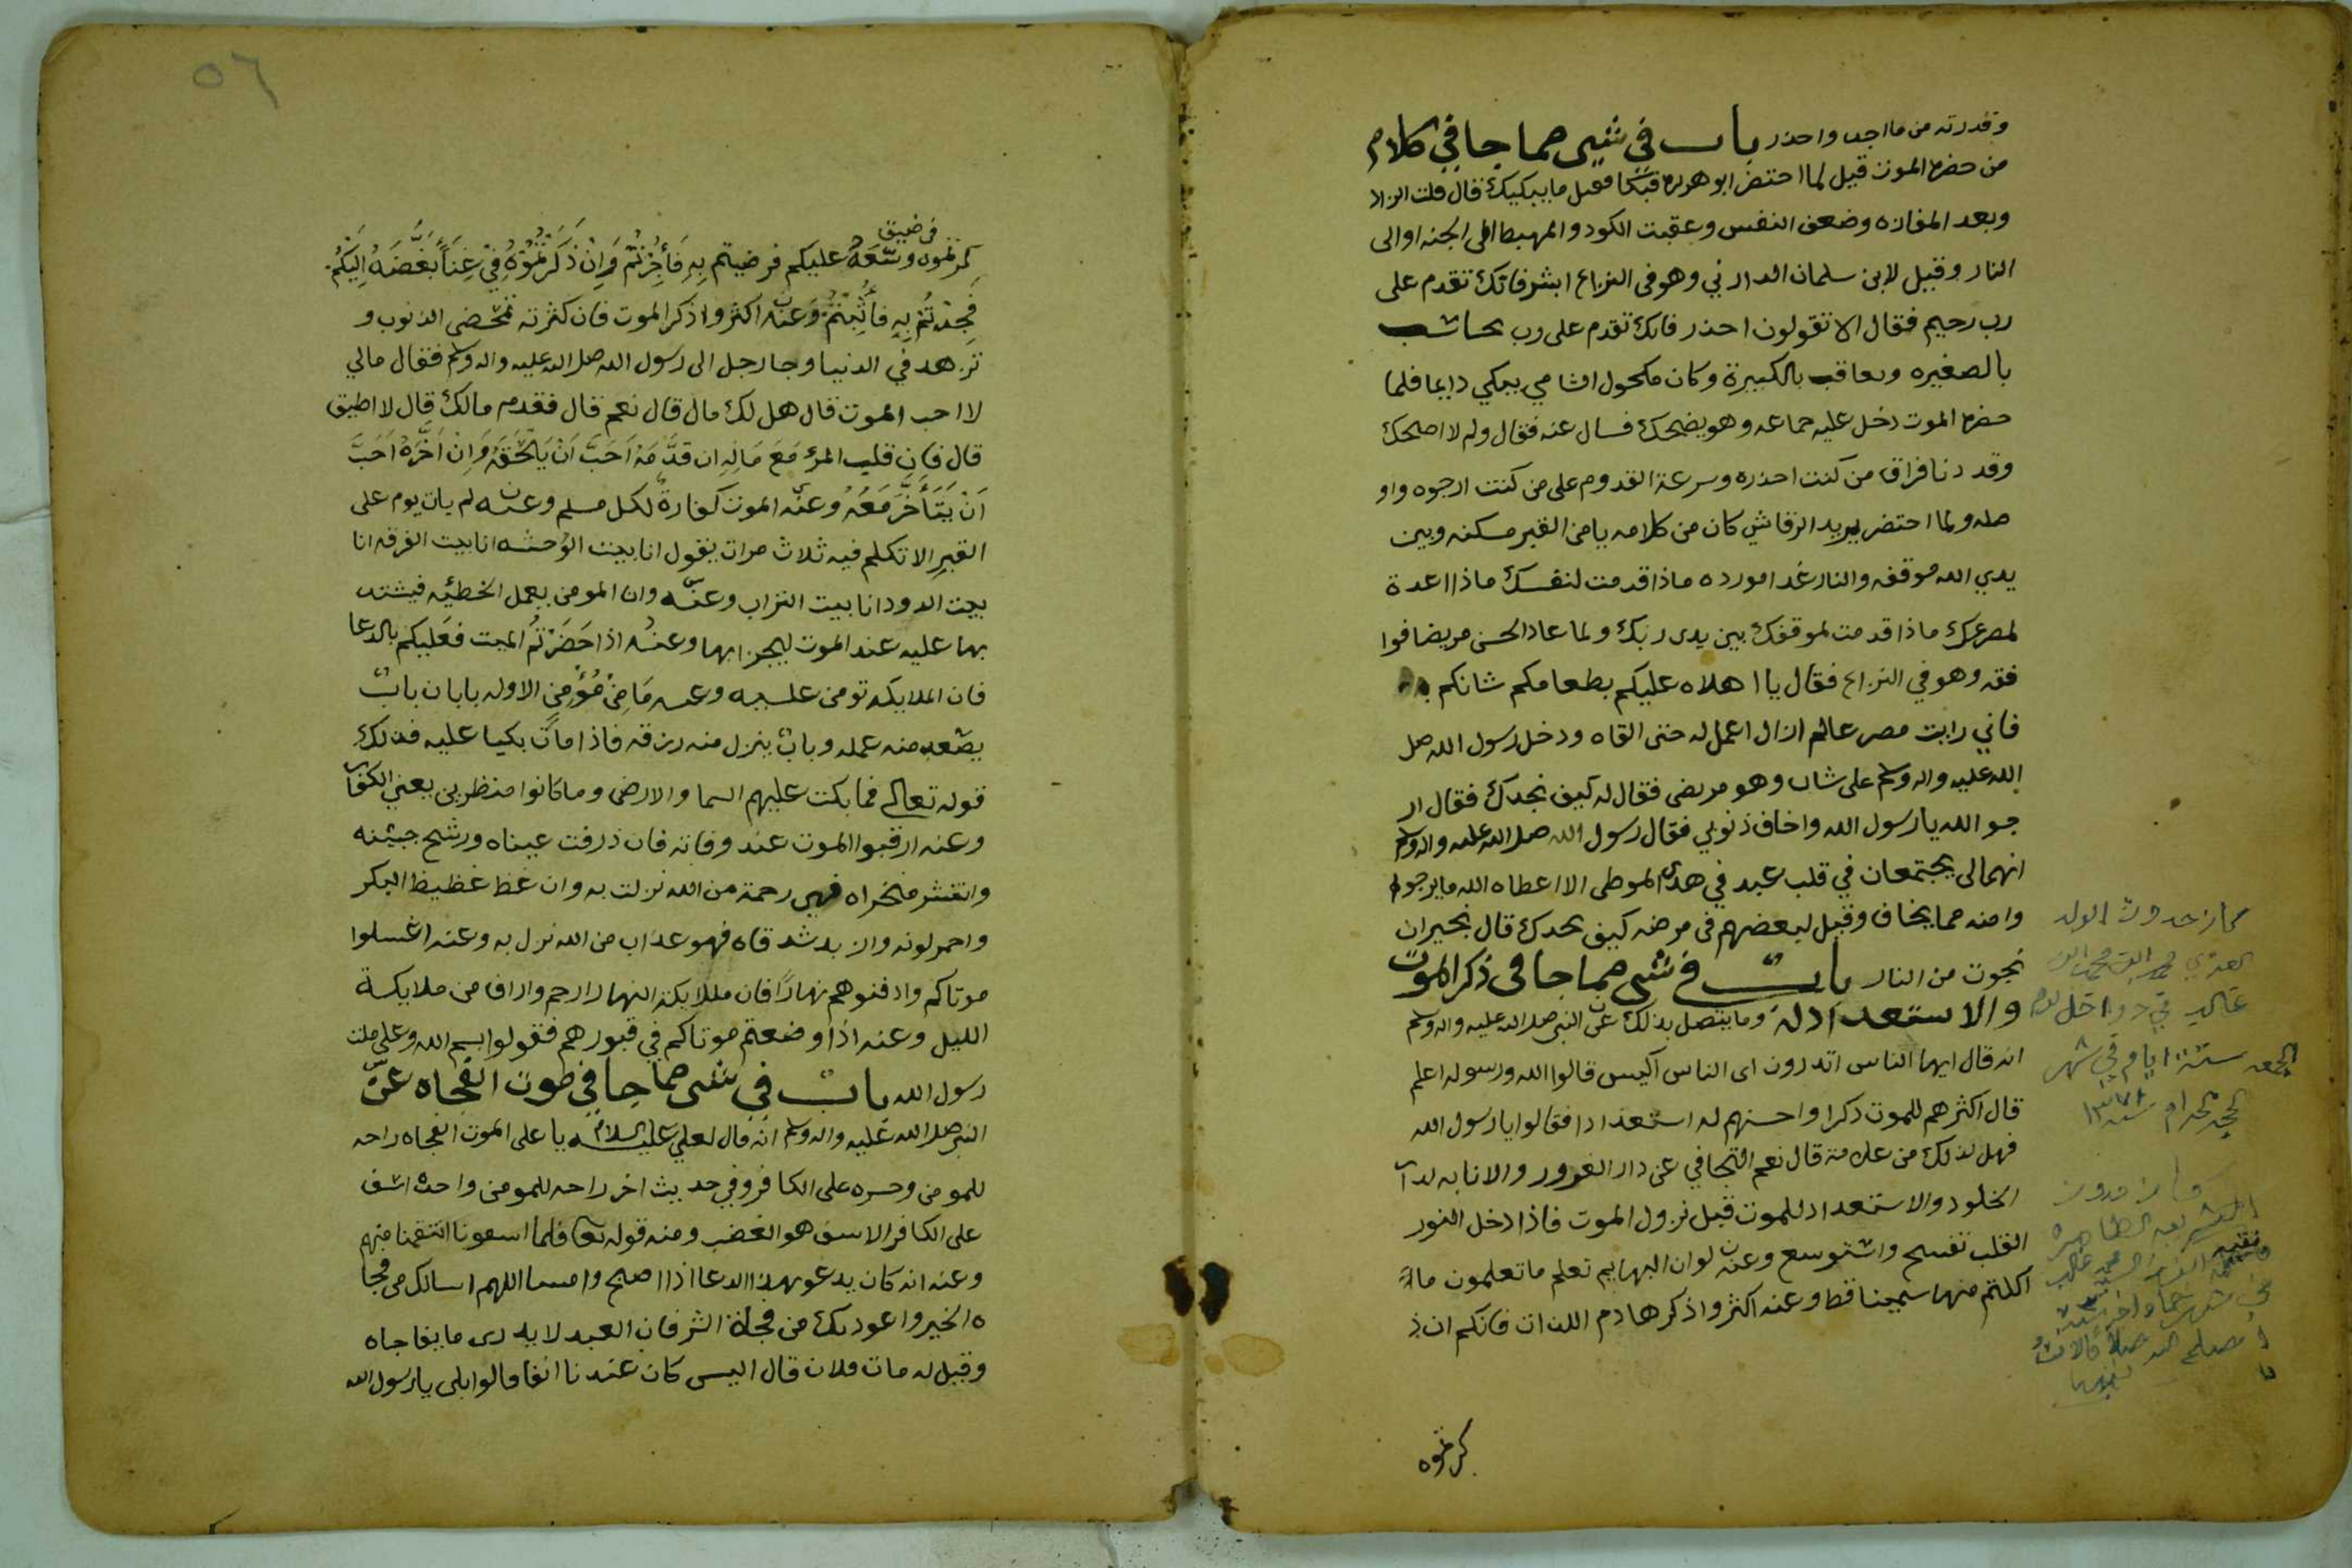 وقدرته من ما اجد واحذر باب في شيى مما جا في كلام
من حضره الموت قيل لما احتضر ابو هريره قبكا فقيل ما يبكيك فقال قلت الزاد
وبعد المفازه وضعف النفس وعقبت الكود والمهبط الى الجنه او الى
النار وقيل لابن سلمان الدارني وهو في النزاع ابشر فانك تقدم على
رب رحيم فقال الا تقولون احذر فانك تقدم على رب يحاسب
بالصغيره ويعاقب بالكبيرة وكان مكحول الشامي يبكي دايما فلما
حضره الموت دخل عليه جماعه وهو يضحك فسال عنه فقال ولم لا اضحك
وقد دنا فراق من كنت احذره وسرعة القدوم على من كنت ارجوه واو
مله ولما احتضر يريد الرقاشي كان من كلامه يا من القبر مسكنه وبين
يدي الله موقفه والنار غدا مورده ماذا قدمت لنفسك ماذا اعدة
لمصرعك ماذا قدمت لموقفك بين يدى ربك ولما عاد الحسن مريضا فوا
فقه وهو في النزاع فقال يا اهلاه عليكم بطعامكم شانكم به
فاني رايت مصرعا لم ازال اعمل له حتى القاه ودخل رسول الله صل
الله عليه واله وسلم على شاب وهو مريض فقال له كيف نجدك فقال ار
جو الله يا رسول الله واخاف ذنوبي فقال رسول الله صلى الله عليه واله وسلم
انهما لى يجتمعان في قلب عبد في هدى الموطى الا اعطاه الله ما يرجو
وامنه مما يخاف وقيل لبعضهم في مرضه كيف نجدك قال بخيران
نجوت من النار باب في شى مما جا في ذكر الموت
والاستعداد له وما يتصل بذلك عن النبي صلى الله عليه واله وسلم
انه قال ايها الناس اتدرون اى الناس اكيس قالوا الله ورسوله اعلم
قال اكثرهم للموت ذكرا واحسنهم له استعدادا فقالوا يا رسول الله
فهل لذلك من علامة قال نعم التجافي عن دار الغرور والانابه لدار
الخلود والاستعداد للموت قبل نزول الموت فاذا دخل النور
القلب تفسح واشتوسع وعنه لو ان البهايم تعلم ما تعلمون ما
اكلتم منها سمينا قط وعنه اكثروا ذكر هادم اللذات فانكم ان ذ
كرتموه
كان حدوث الولد
العزي
الجمعه ستة ايام في شهر
الحجه الحرام سنه ١٣٧٨
٥٦
في ضيق
كرتموه وسّعه عليكم فرضيتم به فأجرتم وان ذكرتموه في غنا بغضه اليكم
فجدتم به فأثبتم وعنه اكثروا ذكر الموت فان كثرته تمحض الذنوب و
تزهد في الدنيا وجا رجل الى رسول الله صلى الله عليه واله وسلم فقال مالي
لا احب الموت قال هل لك مال قال نعم قال فقدم مالك قال لا اطيق
قال فان قلب المرء مع ماله ان قدّمه احبّ ان يلحقه وان اخّره احبّ
ان يتأخّر معه وعنه الموت كفارة لكل مسلم وعنه لم يات يوم على
القبر الا تكلم فيه ثلاث مرات يقول انا بيت الوحشه انا بيت الغرقه انا
بيت الدود انا بيت التراب وعنه وان المومن يعمل الخطئيه فيشتد
بها عليه عند الموت ليجزا بها وعنه اذا حضرتم الميت فعليكم بالدعا
فان الملايكه تومن عليه وعنه ما من مؤمن الا وله بابان باب
يصعد منه عمله وباب ينزل منه رزقه فاذا مات بكيا عليه فذلك
قوله تعالى فما بكت عليهم السما والارض وما كانوا منظرين يعني الكفار
وعنه ارقبوا الموت عند وفاته فان ذرفت عيناه ورشح جبينه
وانتشر منخراه فهي رحمة من الله نزلت به وان غط غطيط البكر
واحمر لونه واربد شدقاه فهو عذاب من الله نزل به وعنه اغسلوا
موتاكم وادفنوهم نهارًا فان ملايكة النهار ارحم واراف من ملايكة
الليل وعنه اذا وضعتم موتاكم في قبورهم فقولوا بسم الله وعلى ملت
رسول الله باب في شى مما جا في موت الفجاه عن
النبي صلى الله عليه واله وسلم انه قال لعلي عليه السلام يا علي الموت الفجاه راحه
للمومن وحسره على الكافر وفي حديث اخر راحه للمومن واحذه اسف
على الكافر الاسف هو الغضب ومنه قوله تعا فلما اسفونا انتقمنا منهم
وعنه انه كان يدعو بهذا الدعا اذا اصبح وامسا اللهم اسالك من فجا
ه الخير واعوذ بك من فجاة الشر فان العبد لا يدرى ما يفاجاه
وقيل له مات فلان قال اليس كان عندنا انفا قالوا بلى يا رسول الله